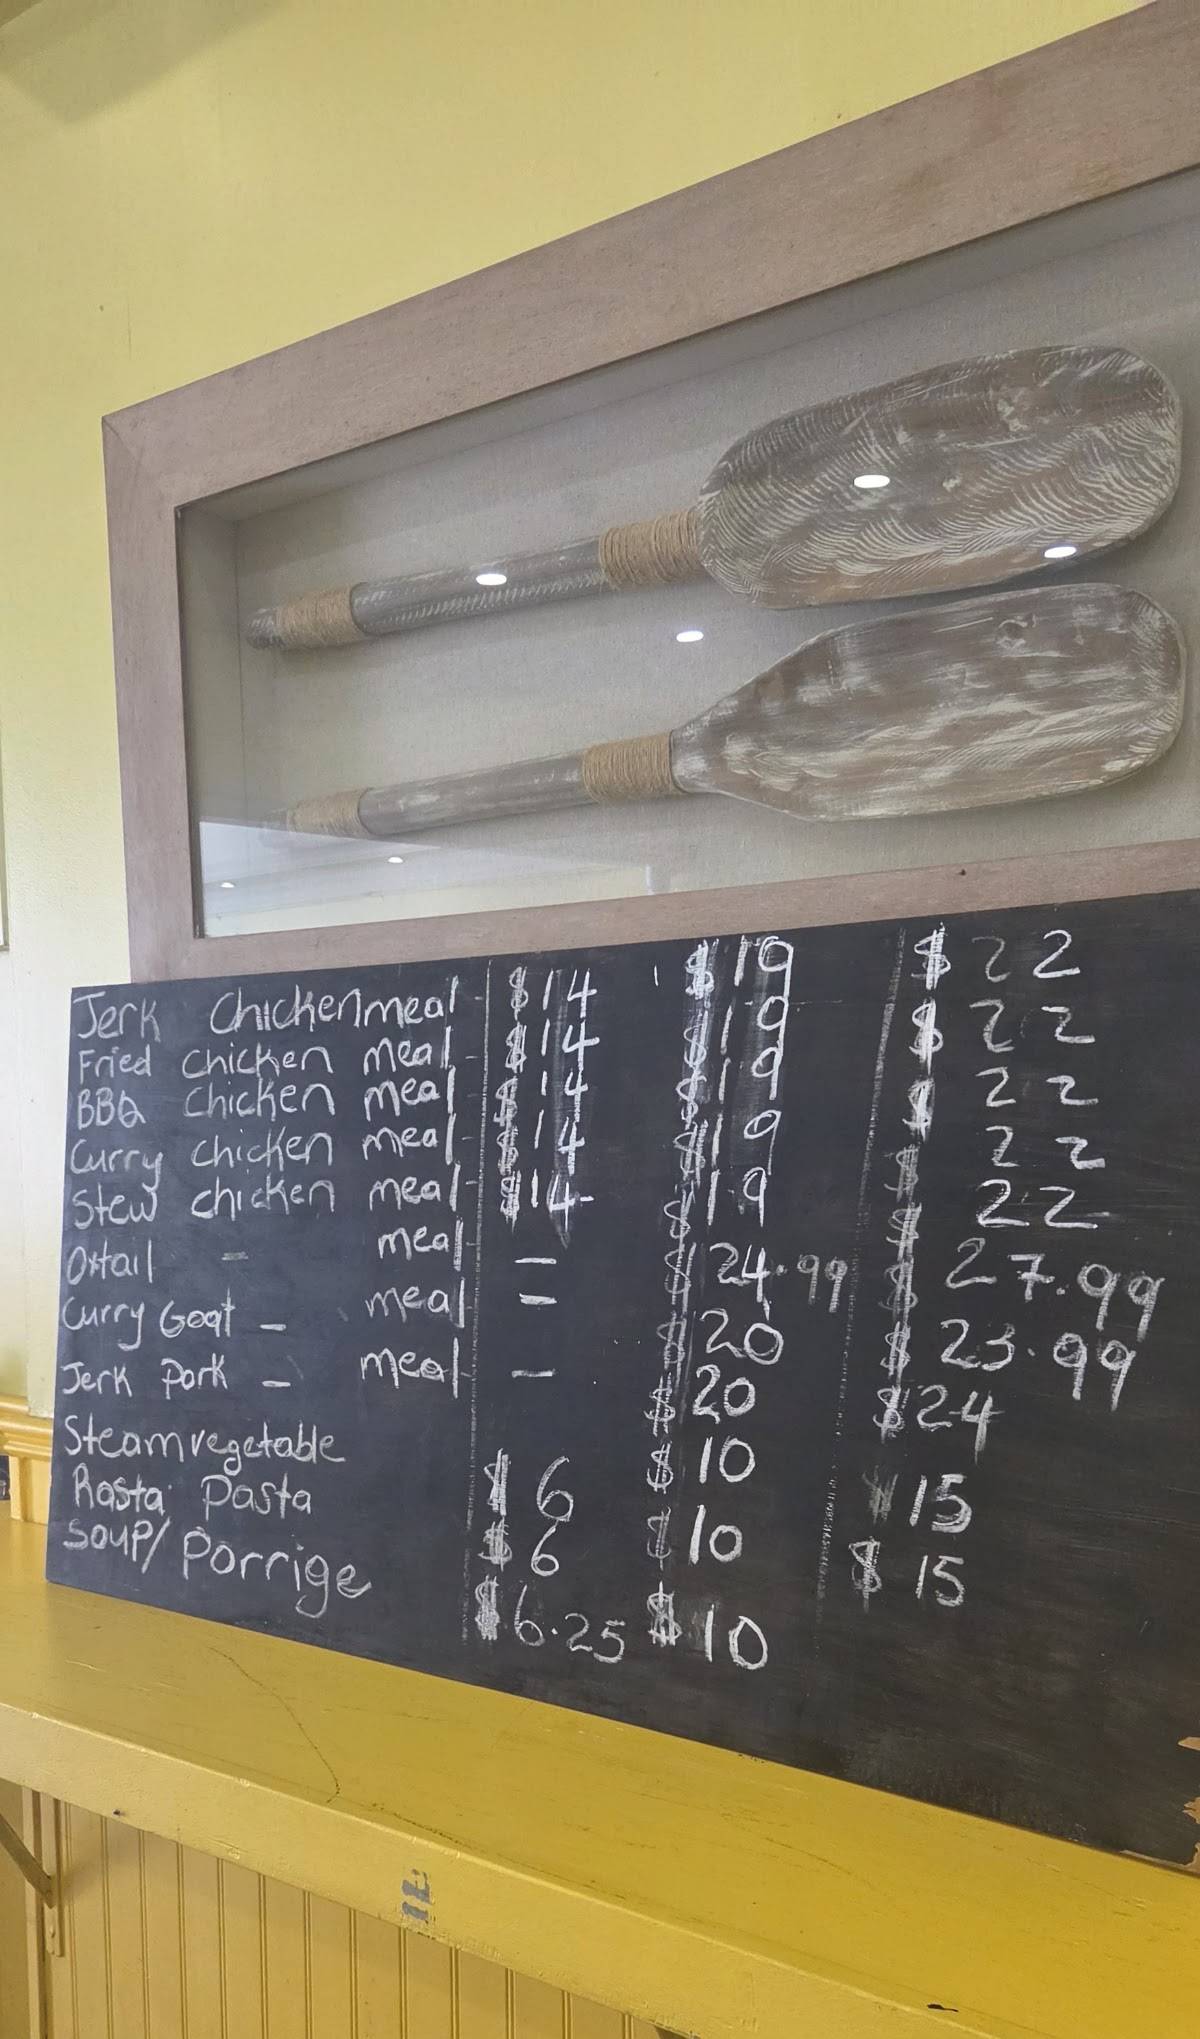 Jerk Chicken meal - $14 $19 $22
Fried chicken meal - $14 $19 $22
BBQ chicken meal - $14 $19 $22
Curry chicken meal - $14 $19 $22
Stew chicken meal - $14 $19 $22
Oxtail - meal - — $24.99 $27.99
Curry Goat - meal - — $20 $23.99
Jerk Pork - meal - — $20 $24
Steam vegetable $6 $10 $15
Rasta Pasta $6 $10 $15
Soup/ Porrige $6.25 $10